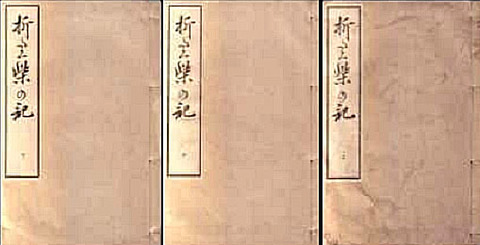 折たく柴の記 上
折たく柴の記 中
折たく柴の記 下